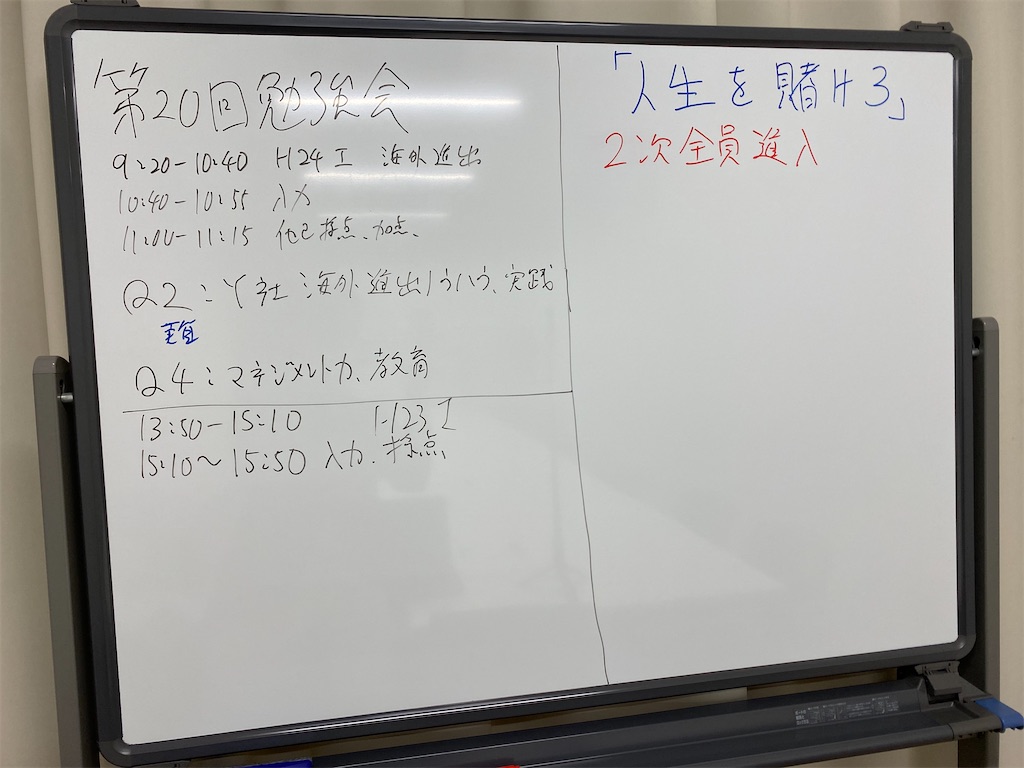 第20回勉強会
9:20-10:40 H24 I 海外進出
10:40-10:55 入力
11:00-11:15 他己採点、加点、
Q2:Y社 海外進出ノウハウ、実践
Q4:マネジメント力、教育
13:50-15:10 H23 I
15:10~15:50 入力、採点、
「人生を賭ける」
2次全員進入